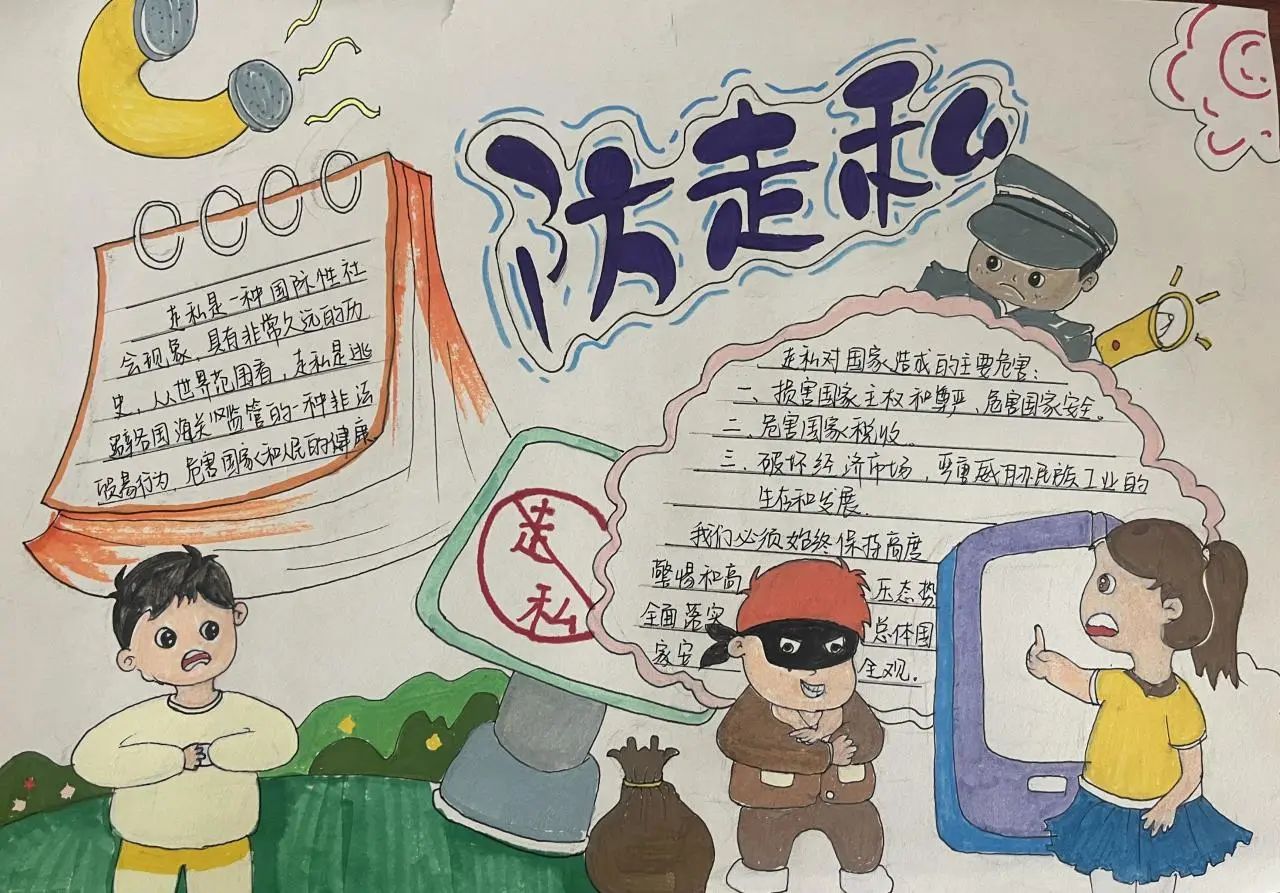 防走私
走私是一种国际性社
会现象，具有非常久远的历
史，从世界范围看，走私是逃
避各国海关监管的一种非法
贸易行为，危害国家和人民的健康。
走私
走私对国家造成的主要危害：
一、损害国家主权和尊严、危害国家安全。
二、危害国家税收。
三、破坏经济市场，严重威胁民族工业的
生存和发展。
我们必须始终保持高度
警惕和高 压态势
全面落实 总体国
家安 全观。